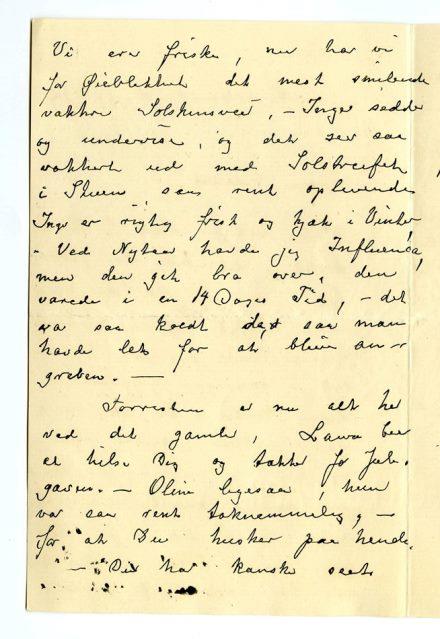 Vi ere friske, nu har vi
for Øieblikket det mest smilende
vakkre Solskinsveir, – Inger sidder
og underviser, og det ser saa
vakkert ud med Solstreifet
i Stuen saa rent oplivende
Inga er rigtig frisk og kjæk i Vinter
– Ved Nytaar havde jeg Influenca,
men den gik bra over, den
varede i en 14 Dages Tid, – det
va saa koldt saa man
havde let for at blive an-
greben. —
er nu alt her
ved det gamle, Laura ber
at hilse Dig og takke for Jule-
gaven. – Oline ligesaa, hun
var saa rent taknemmelig, –
for at Du husker paa hende.
– Du har kanske seet